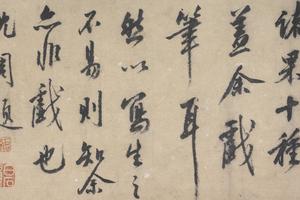 諸果十種
蓋余戲
筆耳
然以寫生之
不易則知余
亦非戲也
沈周題